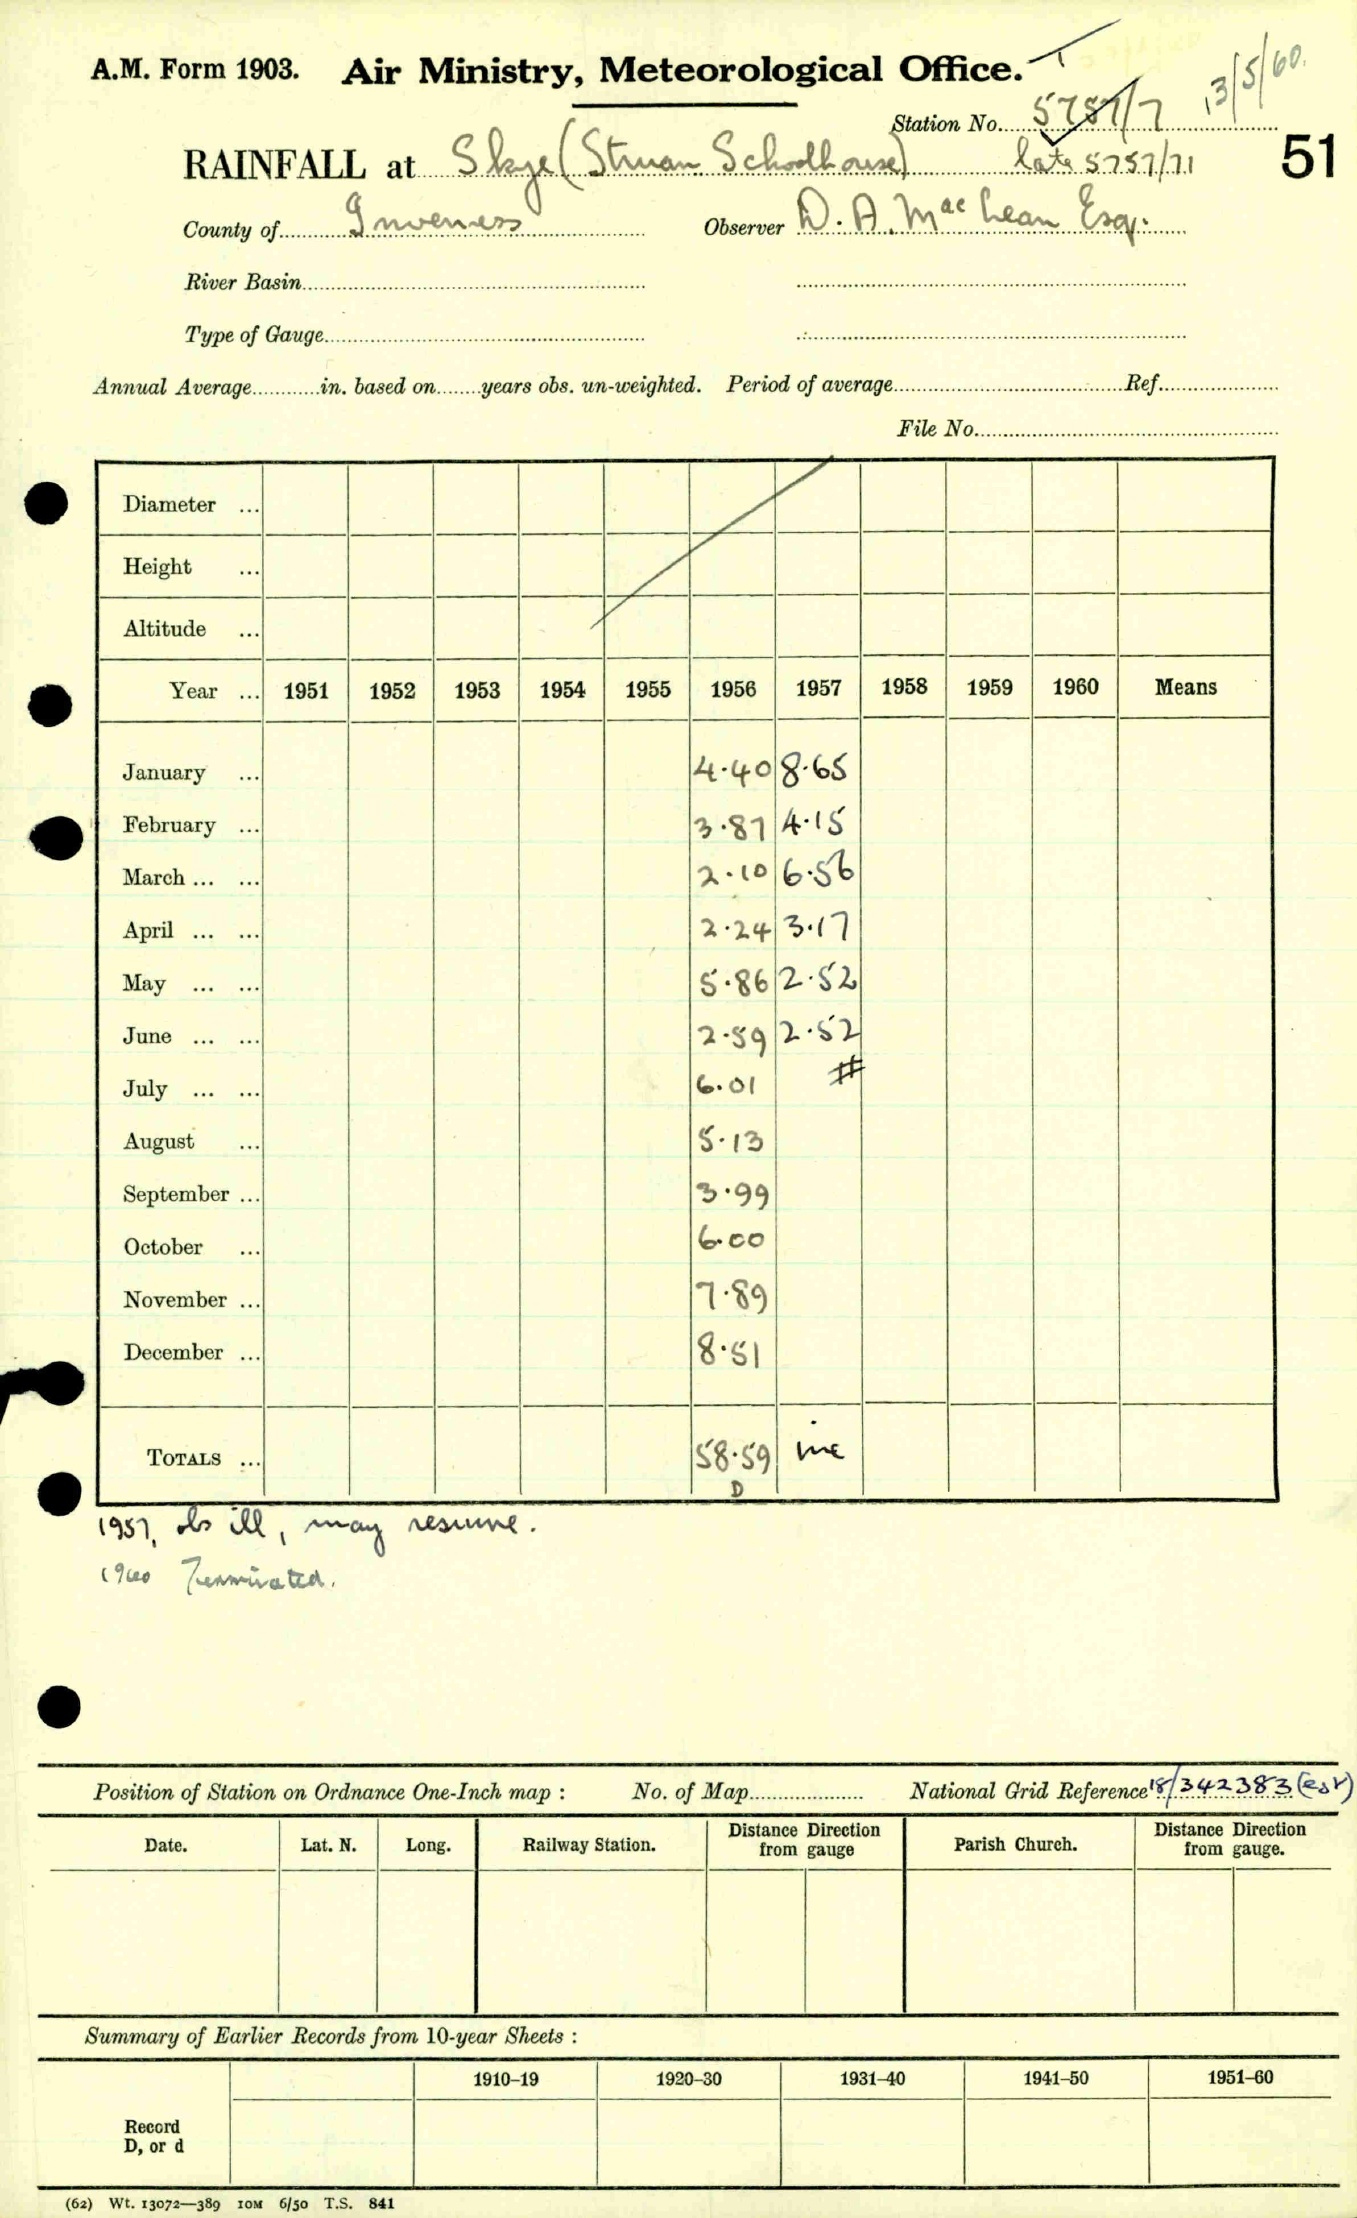 A.M. Form 1903. Air Ministry, Meteorological Office.
13/5/60.
Station No. 5757/7
RAINFALL at Skye (Struan Schoolhouse) late 5757/71
51
County of Inverness Observer D. A. MacLean Esq.
River Basin
Type of Gauge
Annual Average in. based on years obs. un-weighted. Period of average Ref.
File No.
Diameter ...
Height ...
Altitude ...
Year ... 1951 1952 1953 1954 1955 1956 1957 1958 1959 1960 Means
January ... 4.40 8.65
February ... 3.87 4.15
March ... ... 2.10 6.56
April ... ... 2.24 3.17
May ... ... 5.86 2.52
June ... ... 2.59 2.52
July ... ... 6.01 #
August ... 5.13
September ... 3.99
October ... 6.00
November ... 7.89
December ... 8.51
TOTALS ... 58.59 inc
D
1957, obs ill, may resume.
1960 Terminated.
Position of Station on Ordnance One-Inch map : No. of Map National Grid Reference 18/342383 (est)
Date. Lat. N. Long. Railway Station. Distance from Direction gauge Parish Church. Distance from Direction gauge.
Summary of Earlier Records from 10-year Sheets :
1910–19 1920–30 1931–40 1941–50 1951–60
Record
D, or d
(62) Wt. 13072—389 10M 6/50 T.S. 841